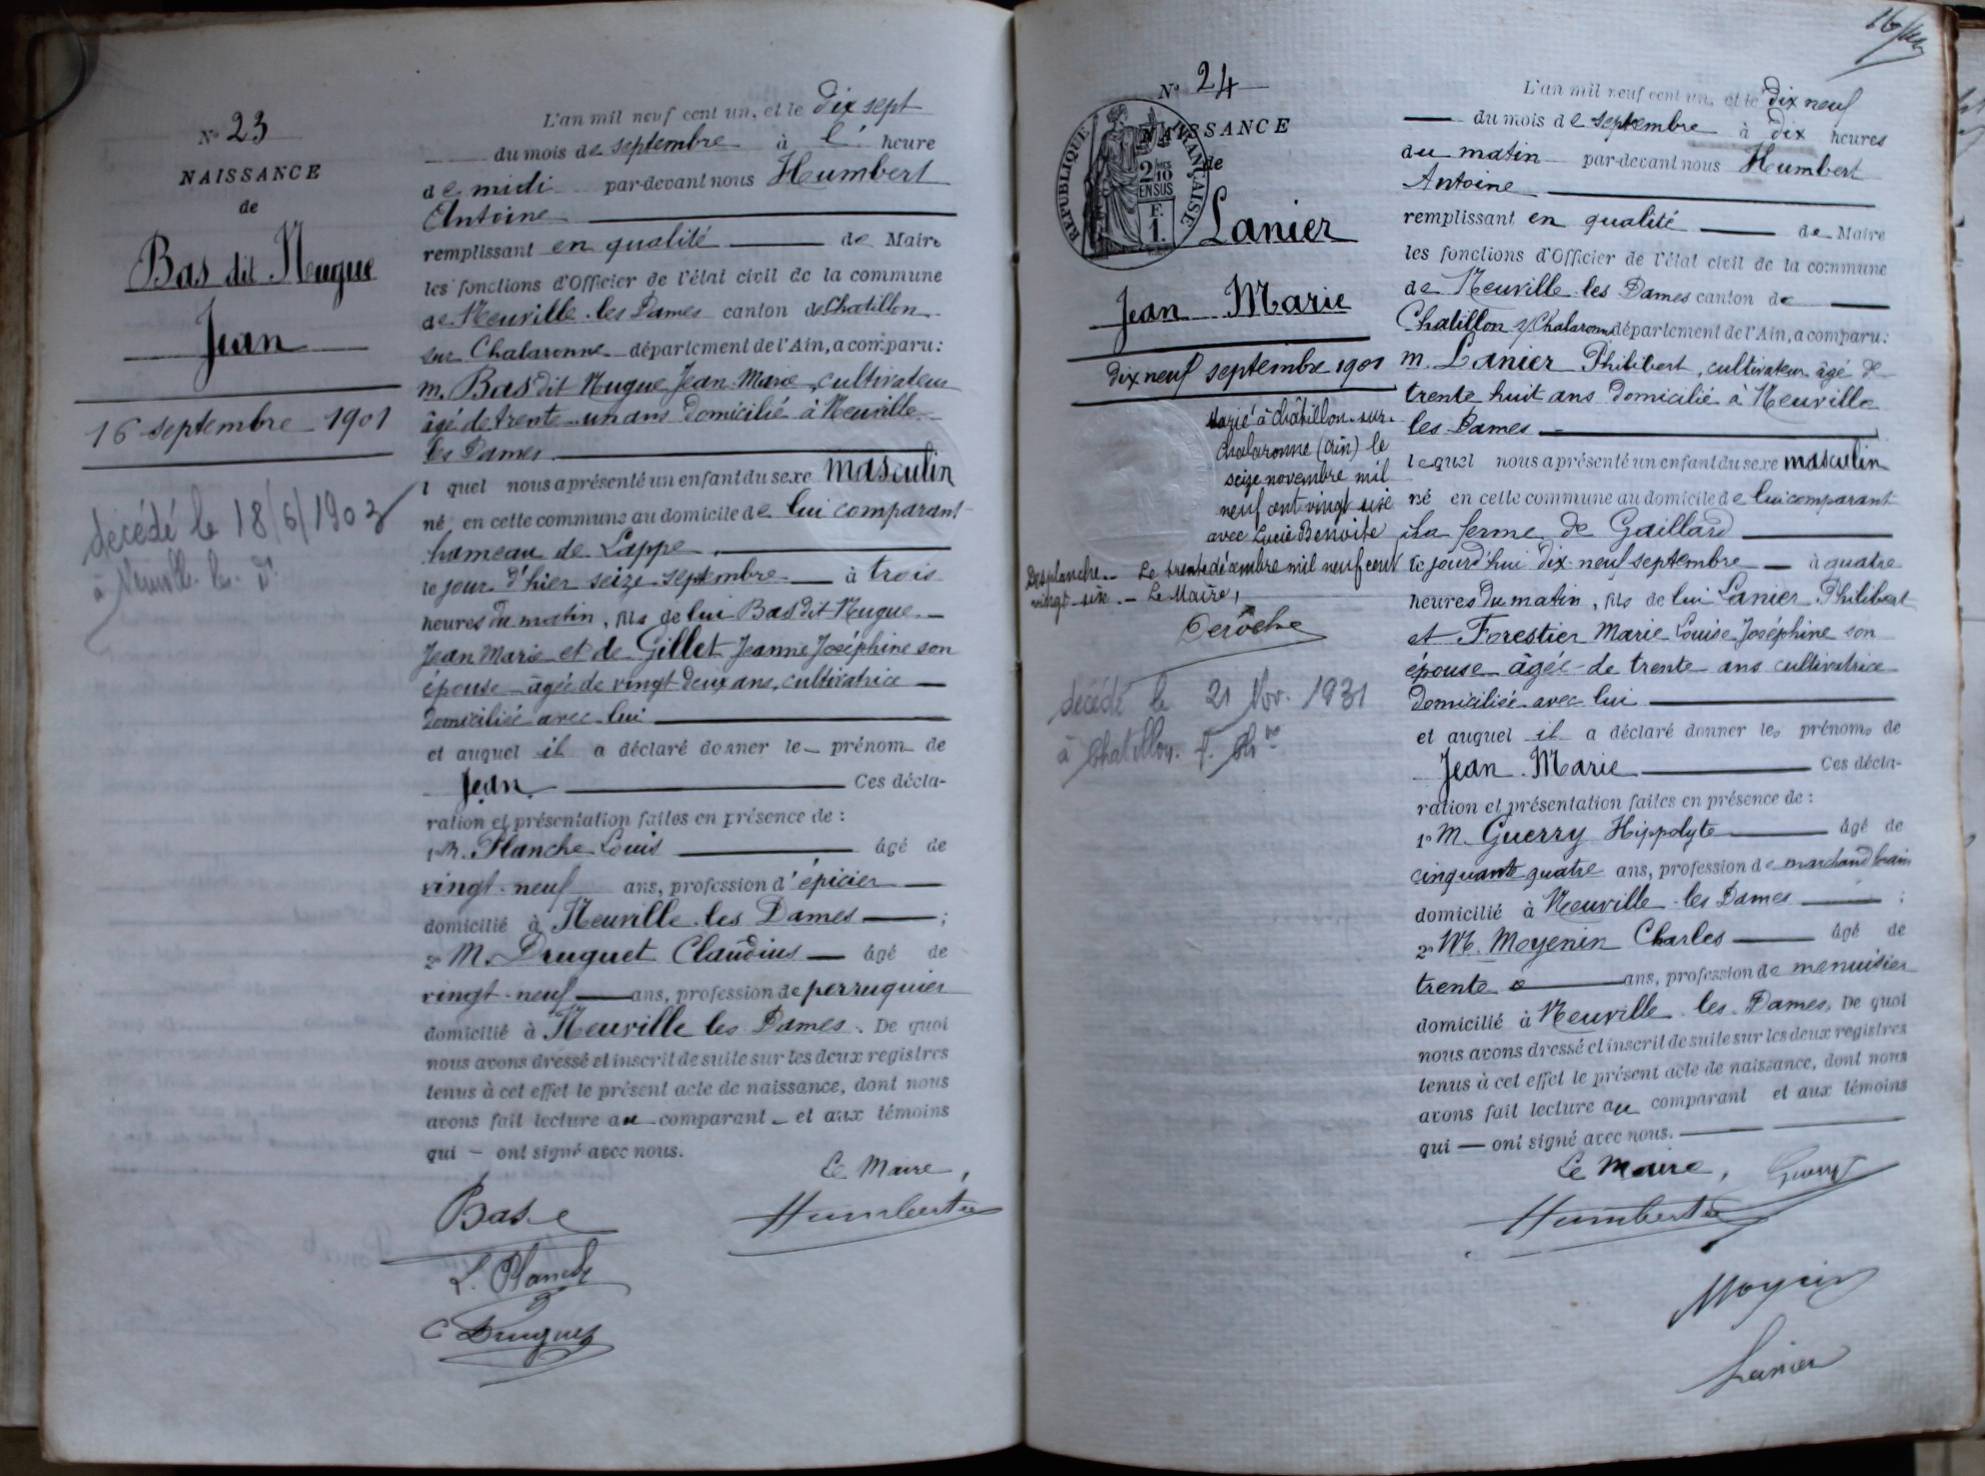 N° 23
NAISSANCE
de
Bas dit Nugue
Jean
16 septembre 1901
décédé le 18/6/1903
à Neuville les D.
L'an mil neuf cent un, et le dix sept
du mois de septembre à heure
de midi par-devant nous Humbert
Antoine
remplissant en qualité de Maire
les fonctions d'Officier de l'état civil de la commune
de Neuville les Dames canton de Chatillon
sur Chalaronne département de l'Ain, a comparu :
M. Bas dit Nugue Jean Marie, cultivateur
âgé de trente un ans domicilié à Neuville
les Dames
l quel nous a présenté un enfant du sexe masculin
né en cette commune au domicile de lui comparant
hameau de Lappe,
le jour d'hier seize septembre à trois
heures du matin, fils de lui Bas dit Nugue
Jean Marie et de Gillet Jeanne Joséphine son
épouse âgée de vingt deux ans, cultivatrice
domiciliée avec lui
et auquel il a déclaré donner le prénom de
Jean Ces décla-
ration et présentation faites en présence de :
1° M. Planche Louis âgé de
vingt-neuf ans, profession d'épicier
domicilié à Neuville les Dames ;
2° M. Druguet Claudius âgé de
vingt-neuf ans, profession de perruquier
domicilié à Neuville les Dames. De quoi
nous avons dressé et inscrit de suite sur les deux registres
tenus à cet effet le présent acte de naissance, dont nous
avons fait lecture au comparant et aux témoins
qui ont signé avec nous.
Le Maire,
Bas
Humbert
L. Planche
C Druguet
N° 24
NAISSANCE
de
RÉPUBLIQUE FRANÇAISE
2/10 EN SUS
F. 1.
Lanier
Jean Marie
dix neuf septembre 1901
Marié à Châtillon-sur-
Chalaronne (Ain) le
seize novembre mil
neuf cent vingt six
avec Lucie Benoite
Desplanche. Le trente décembre mil neuf cent
vingt-six. Le Maire,
Deroche
décédé le 21 Nov. 1931
à Chatillon. s. Ch ne
L'an mil neuf cent un, et le dix neuf
du mois de septembre à dix heures
du matin par-devant nous Humbert
Antoine
remplissant en qualité de Maire
les fonctions d'Officier de l'état civil de la commune
de Neuville les Dames canton de
Chatillon s/ Chalaronne département de l'Ain, a comparu :
M. Lanier Philibert, cultivateur âgé de
trente huit ans domicilié à Neuville
les Dames
lequel nous a présenté un enfant du sexe masculin
né en cette commune au domicile de lui comparant
à la ferme de Gaillard
le jourd'hui dix neuf septembre à quatre
heures du matin, fils de lui Lanier Philibert
et Forestier Marie Louise Joséphine son
épouse âgée de trente ans cultivatrice
domiciliée avec lui
et auquel il a déclaré donner les prénoms de
Jean Marie Ces décla-
ration et présentation faites en présence de :
1° M. Guerry Hippolyte âgé de
cinquante quatre ans, profession de marchand
domicilié à Neuville les Dames ;
2° M. Moyenin Charles âgé de
trente ans, profession de menuisier
domicilié à Neuville les Dames, De quoi
nous avons dressé et inscrit de suite sur les deux registres
tenus à cet effet le présent acte de naissance, dont nous
avons fait lecture au comparant et aux témoins
qui ont signé avec nous.
Le Maire, Guerry
Humbert
Lanier